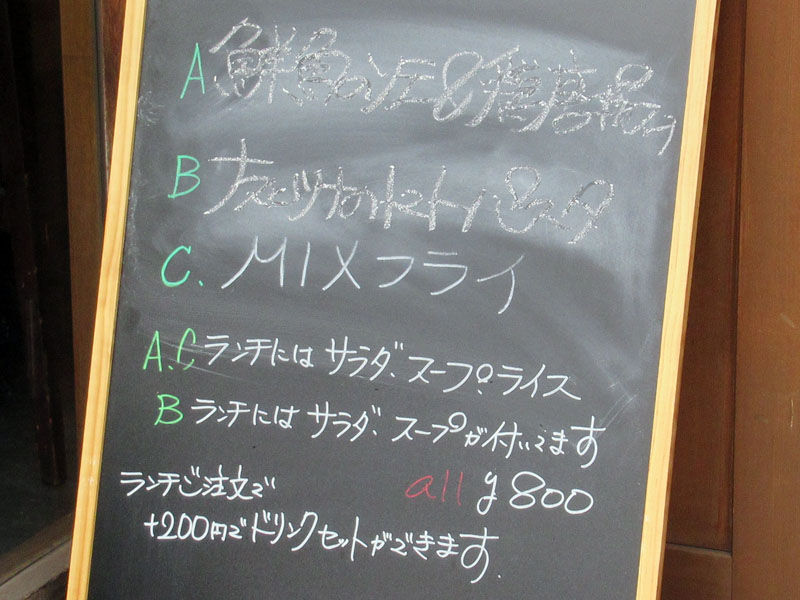 A 鮮魚のソテー&
B ナスとツナの パスタ
C. MIXフライ
A.C ランチには サラダ、スープ、ライス
B ランチには サラダ、スープが付いてます
ランチご注文で all ¥800
+200円でドリンクセットができます.